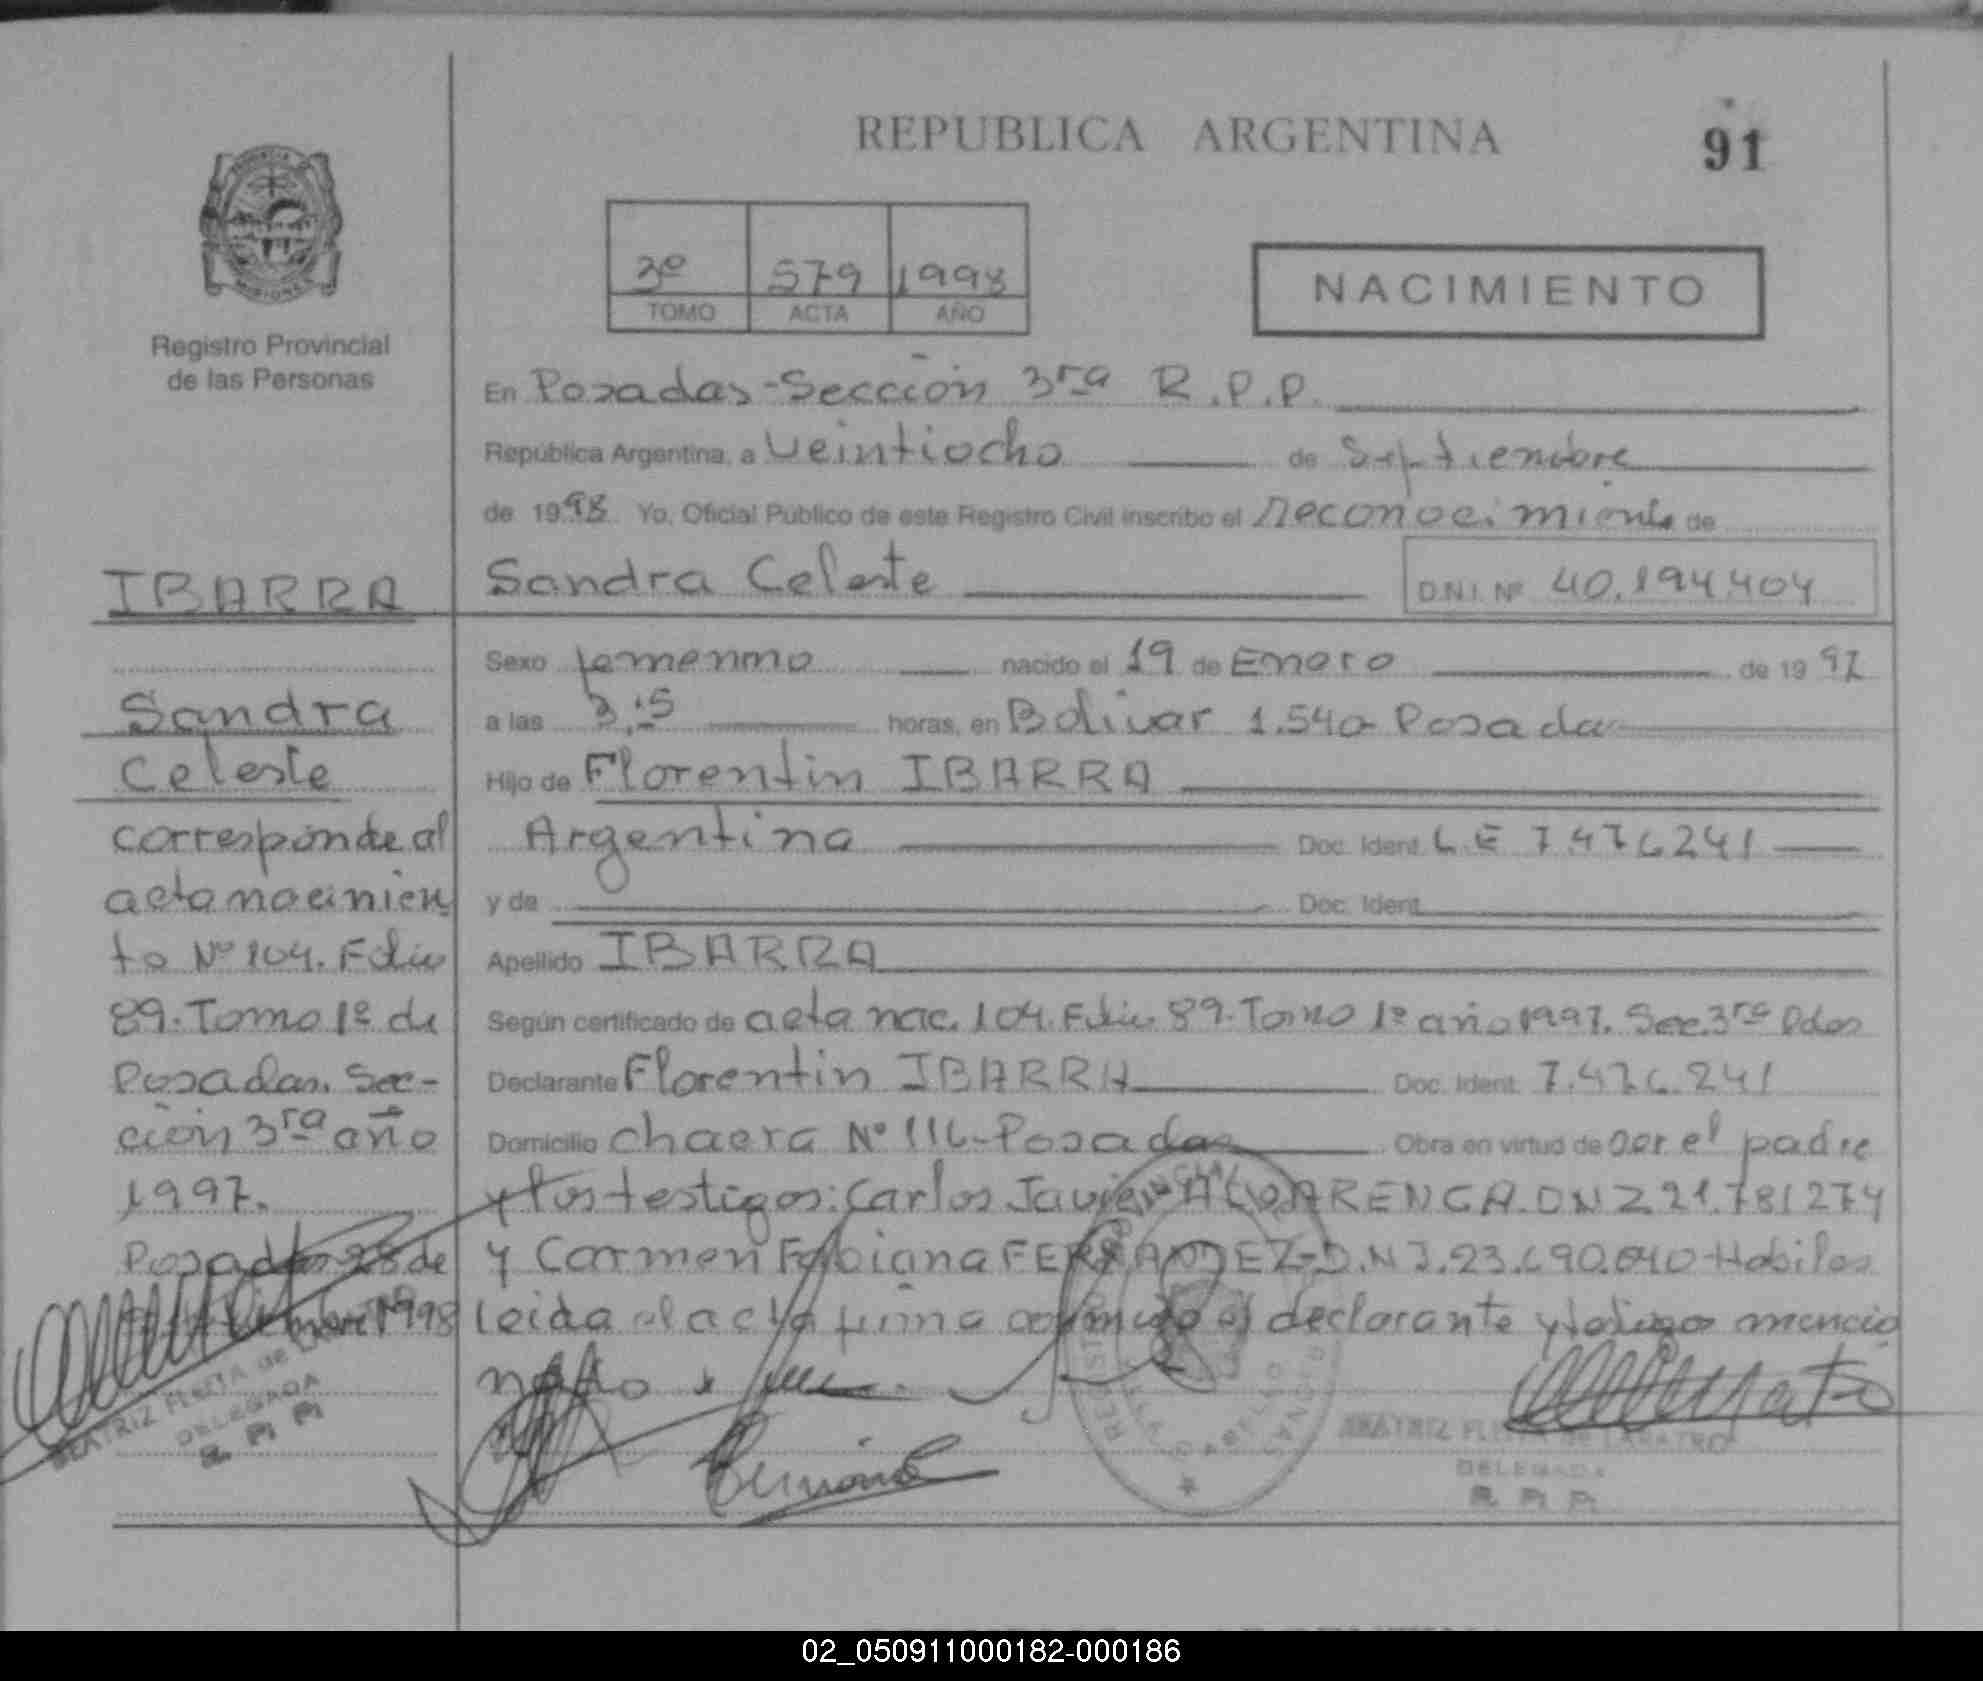 REPUBLICA ARGENTINA
91
3º 579 1998
TOMO ACTA AÑO
NACIMIENTO
Registro Provincial
de las Personas
En Posadas-Sección 3ra R.P.P.
República Argentina, a Veintiocho de Septiembre
de 1998 Yo, Oficial Público de este Registro Civil inscribo el Reconocimiento de
Sandra Celeste D.N.I. Nº 40.194.404
Sexo femenino nacido el 19 de Enero de 1997
a las 3,15 horas, en Bolivar 1.540 Posadas
Hijo de Florentin IBARRA
Argentina Doc. Ident. L E 7.476241
y de Doc. Ident.
Apellido IBARRA
Según certificado de acta nac. 104. Folio 89. Tomo 1º año 1997. Sec. 3ra Pdas
Declarante Florentin IBARRA Doc. Ident. 7.476.241
Domicilio chacra Nº 116-Posadas Obra en virtud de por el padre
y los testigos: Carlos Javier DNI 21.781274
y Carmen Fabiana FERNANDEZ-D.N.I.23.690.040-Habiles
leida el acta firma conmigo el declarante y testigos mencio
nado
IBARRA
Sandra
Celeste
corresponde al
acta nacimien
to Nº 104. Folio
89. Tomo 1º de
Posadas. Sec-
ción 3ra año
1997.
Posadas 28 de
1998
BEATRIZ DE
DELEGADA
R P P
BEATRIZ DE
DELEGADA
R P P
02_050911000182-000186